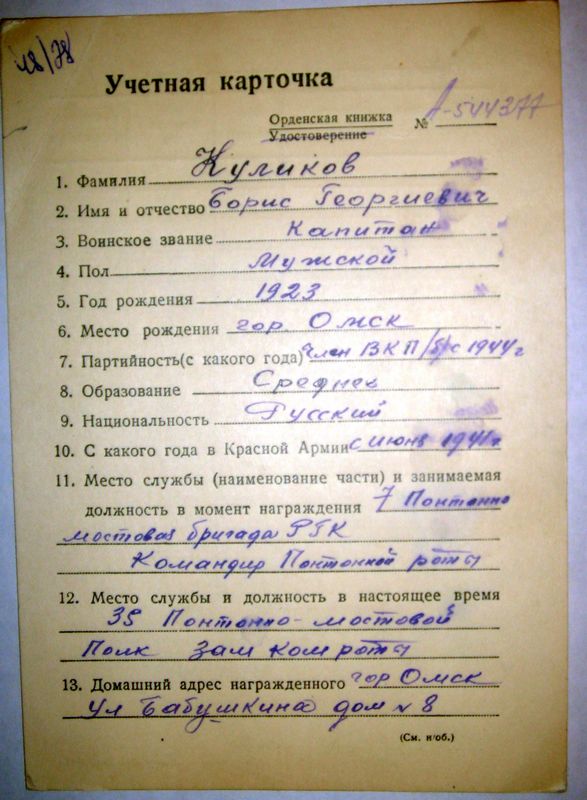 48/78
Учетная карточка
Орденская книжка
Удостоверение № А-544377
1. Фамилия Куликов
2. Имя и отчество Борис Георгиевич
3. Воинское звание Капитан
4. Пол Мужской
5. Год рождения 1923
6. Место рождения гор Омск
7. Партийность(с какого года) Член ВКП/б/с 1944 г
8. Образование Среднее
9. Национальность Русский
10. С какого года в Красной Армии с июня 1941 г
11. Место службы (наименование части) и занимаемая
должность в момент награждения 7 Понтонно
мостовая бригада РГК
Командир Понтонной роты
12. Место службы и должность в настоящее время
35 Понтонно-мостовой
Полк Зам ком роты
13. Домашний адрес награжденного гор Омск
ул Бабушкина дом № 8
(См. н/об.)